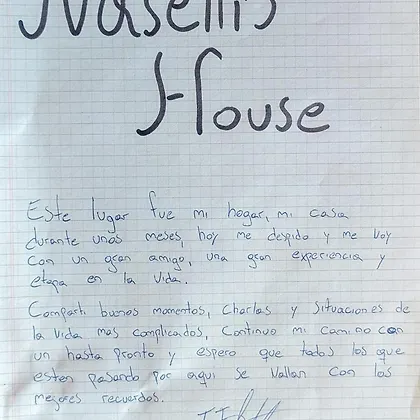 House
Este lugar fue mi hogar, mi casa
durante unos meses, hoy me despido y me voy
con un gran amigo, una gran experiencia y
etapa en la vida.
Comparti buenos momentos, charlas y situaciones de
la vida mas complicados, Continuo mi camino con
un hasta pronto y espero que todos los que
esten pasando por aqui se vallan con los
mejores recuerdos.